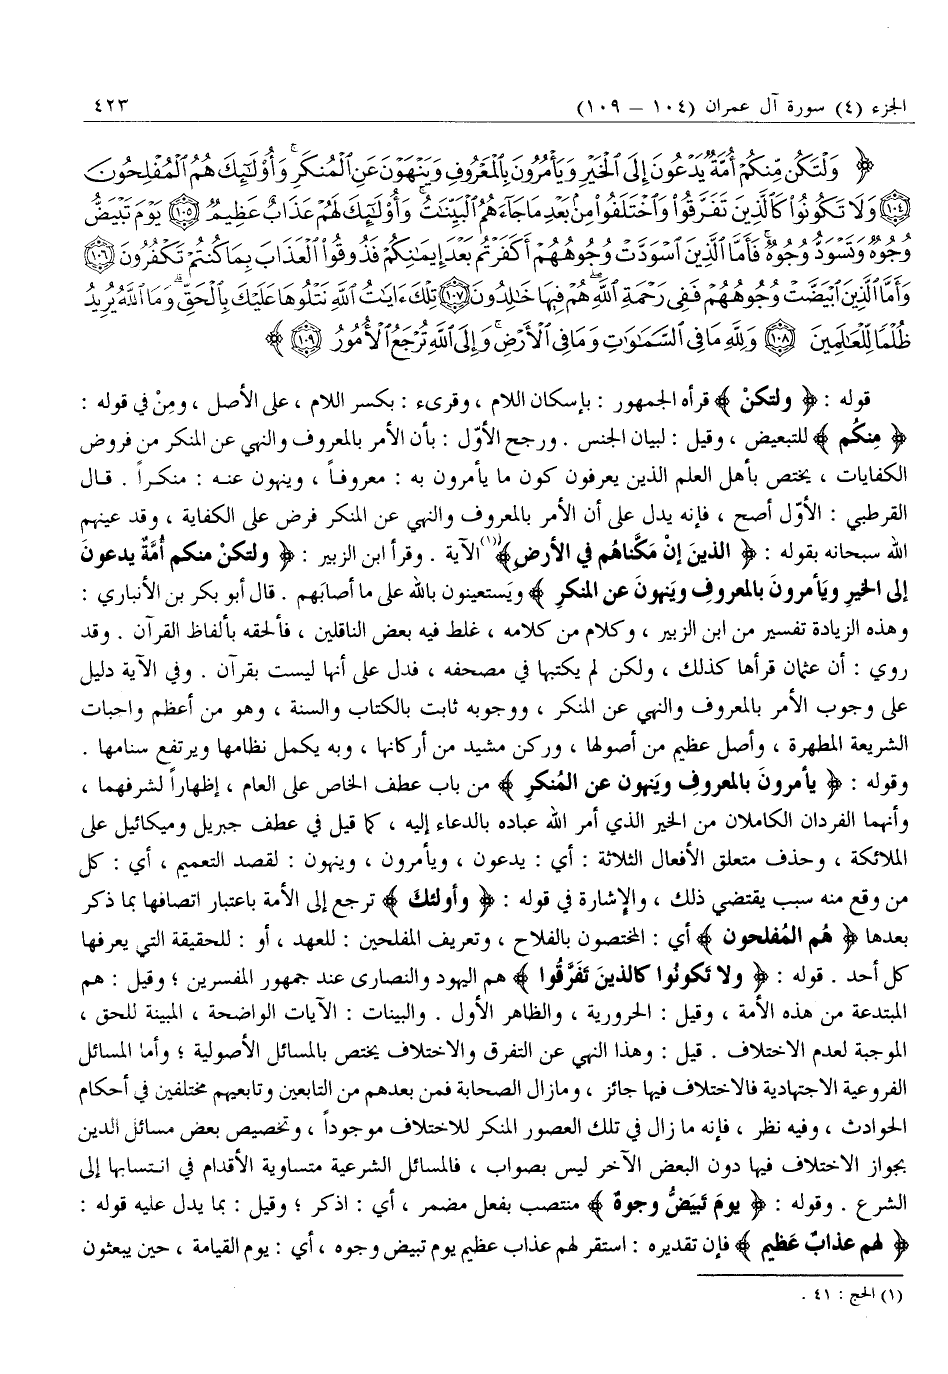 الجزء (٤) سورة آل عمران (١٠٤ – ١٠٩) ٤٢٣
﴿ وَلْتَكُن مِّنكُمْ أُمَّةٌ يَدْعُونَ إِلَى الْخَيْرِ وَيَأْمُرُونَ بِالْمَعْرُوفِ وَيَنْهَوْنَ عَنِ الْمُنكَرِ ۚ وَأُوْلَٰٓئِكَ هُمُ الْمُفْلِحُونَ
١٠٤ وَلَا تَكُونُوا كَالَّذِينَ تَفَرَّقُوا وَاخْتَلَفُوا مِنْ بَعْدِ مَا جَآءَهُمُ الْبَيِّنَٰتُ ۚ وَأُوْلَٰٓئِكَ لَهُمْ عَذَابٌ عَظِيمٌ ١٠٥ يَوْمَ تَبْيَضُّ
وُجُوهٌ وَتَسْوَدُّ وُجُوهٌ ۚ فَأَمَّا الَّذِينَ اسْوَدَّتْ وُجُوهُهُمْ أَكَفَرْتُم بَعْدَ إِيمَٰنِكُمْ فَذُوقُوا الْعَذَابَ بِمَا كُنتُمْ تَكْفُرُونَ ١٠٦
وَأَمَّا الَّذِينَ ابْيَضَّتْ وُجُوهُهُمْ فَفِي رَحْمَةِ اللَّهِ ۖ هُمْ فِيهَا خَٰلِدُونَ ١٠٧ تِلْكَ ءَايَٰتُ اللَّهِ نَتْلُوهَا عَلَيْكَ بِالْحَقِّ ۗ وَمَا اللَّهُ يُرِيدُ
ظُلْمًا لِّلْعَٰلَمِينَ ١٠٨ وَلِلَّهِ مَا فِي السَّمَٰوَٰتِ وَمَا فِي الْأَرْضِ ۚ وَإِلَى اللَّهِ تُرْجَعُ الْأُمُورُ ١٠٩ ﴾
قوله : ﴿ ولتكنْ ﴾ قرأه الجمهور : بإسكان اللام ، وقرىء : بكسر اللام ، على الأصل ، ومِنْ في قوله :
﴿ مِنكُم ﴾ للتبعيض ، وقيل : لبيان الجنس . ورجح الأوّل : بأن الأمر بالمعروف والنهي عن المنكر من فروض
الكفايات ، يختص بأهل العلم الذين يعرفون كون ما يأمرون به : معروفاً ، وينهون عنه : منكراً . قال
القرطبي : الأوّل أصح ، فإنه يدل على أن الأمر بالمعروف والنهي عن المنكر فرض على الكفاية ، وقد عينهم
الله سبحانه بقوله : ﴿ الذينَ إنْ مَكَّناهُم في الأرضِ ﴾(١) الآية . وقرأ ابن الزبير : ﴿ ولتكنْ منكم أُمَّةٌ يدعونَ
إلى الخيرِ ويَأمرونَ بالمعروفِ ويَنهونَ عن المنكرِ ﴾ ويَستعينون بالله على ما أصابَهم . قال أبو بكر بن الأنباري :
وهذه الزيادة تفسير من ابن الزبير ، وكلام من كلامه ، غلط فيه بعض الناقلين ، فألحقه بألفاظ القرآن . وقد
روي : أن عثمان قرأها كذلك ، ولكن لم يكتبها في مصحفه ، فدل على أنها ليست بقرآن . وفي الآية دليل
على وجوب الأمر بالمعروف والنهي عن المنكر ، ووجوبه ثابت بالكتاب والسنة ، وهو من أعظم واجبات
الشريعة المطهرة ، وأصل عظيم من أصولها ، وركن مشيد من أركانها ، وبه يكمل نظامها ويرتفع سنامها .
وقوله : ﴿ يأمرونَ بالمعروفِ ويَنهون عن المُنكرِ ﴾ من باب عطف الخاص على العام ، إظهاراً لشرفهما ،
وأنهما الفردان الكاملان من الخير الذي أمر الله عباده بالدعاء إليه ، كما قيل في عطف جبريل وميكائيل على
الملائكة ، وحذف متعلق الأفعال الثلاثة : أي : يدعون ، ويأمرون ، وينهون : لقصد التعميم ، أي : كل
من وقع منه سبب يقتضي ذلك ، والإشارة في قوله : ﴿ وأولئكَ ﴾ ترجع إلى الأمة باعتبار اتصافها بما ذكر
بعدها ﴿ هُم المُفلحون ﴾ أي : المختصون بالفلاح ، وتعريف المفلحين : للعهد ، أو : للحقيقة التي يعرفها
كل أحد . قوله : ﴿ ولا تكونُوا كالذينَ تَفَرَّقُوا ﴾ هم اليهود والنصارى عند جمهور المفسرين ؛ وقيل : هم
المبتدعة من هذه الأمة ، وقيل : الحرورية ، والظاهر الأول . والبينات : الآيات الواضحة ، المبينة للحق ،
الموجبة لعدم الاختلاف . قيل : وهذا النهي عن التفرق والاختلاف يختص بالمسائل الأصولية ؛ وأما المسائل
الفروعية الاجتهادية فالاختلاف فيها جائز ، ومازال الصحابة فمن بعدهم من التابعين وتابعيهم مختلفين في أحكام
الحوادث ، وفيه نظر ، فإنه ما زال في تلك العصور المنكر للاختلاف موجوداً ، وتخصيص بعض مسائل الدين
بجواز الاختلاف فيها دون البعض الآخر ليس بصواب ، فالمسائل الشرعية متساوية الأقدام في انتسابها إلى
الشرع . وقوله : ﴿ يومَ تَبيَضُّ وجوهٌ ﴾ منتصب بفعل مضمر ، أي : اذكر ؛ وقيل : بما يدل عليه قوله :
﴿ لهم عذابٌ عَظيم ﴾ فإن تقديره : استقر لهم عذاب عظيم يوم تبيض وجوه ، أي : يوم القيامة ، حين يبعثون
(١) الحج : ٤١ .